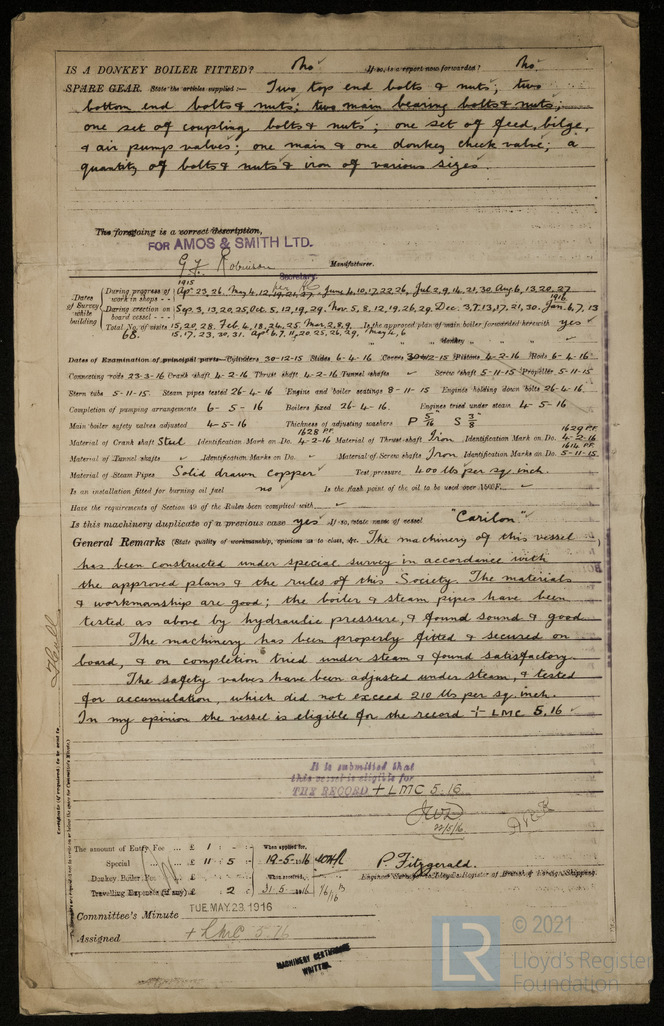 IS A DONKEY BOILER FITTED? No ✓ If so, is a report now forwarded? No ✓
SPARE GEAR. State the articles supplied:— Two top end bolts & nuts, two
bottom end bolts & nuts; two main bearing bolts & nuts;
one set of coupling bolts & nuts; one set of feed, bilge,
& air pump valves; one main & one donkey check valve; a
quantity of bolts & nuts & iron of various sizes.
The foregoing is a correct description,
FOR AMOS & SMITH LTD.
Manufacturer.
Secretary.
1915
Dates of Survey while building
During progress of work in shops - - Apr 23, 26, May 4, 12, 19, 21, 27, June 4, 10, 17, 22, 26, July 2, 9, 14, 21, 30 Aug 6, 13, 20, 27
1916
During erection on board vessel - - - Sep. 3, 13, 20, 25, Oct. 5, 12, 19, 29, Nov. 5, 8, 12, 19, 26, 29, Dec. 3, 7, 13, 17, 21, 30, Jan. 6, 7, 13
Total No. of visits 15, 20, 28, Feb. 4, 18, 24, 25 Mar. 2, 8, 9, Is the approved plan of main boiler forwarded herewith yes ✓
68. 15, 17, 23, 30, 31, Apr 6, 7, 11, 20, 25, 26, 29, May 4, 6
" " " donkey " " "
Dates of Examination of principal parts—Cylinders 30-12-15 Slides 6-4-16 Covers 30-12-15 Pistons 4-2-16 Rods 6-4-16
Connecting rods 23-3-16 Crank shaft 4-2-16 Thrust shaft 4-2-16 Tunnel shafts ✓ Screw shaft 5-11-15 Propeller 5-11-15
Stern tube 5-11-15 Steam pipes tested 26-4-16 Engine and boiler seatings 8-11-15 Engines holding down bolts 26-4-16
Completion of pumping arrangements 6-5-16 Boilers fixed 26-4-16 Engines tried under steam 4-5-16
Main boiler safety valves adjusted 4-5-16 Thickness of adjusting washers P 5/16 S 3/8
Material of Crank shaft Steel Identification Mark on Do. 1628 P.F. 4-2-16 Material of Thrust shaft Iron Identification Mark on Do. 1629 P.F. 4-2-16
Material of Tunnel shafts ✓ Identification Marks on Do. ✓ Material of Screw shafts Iron Identification Marks on Do. 1614 P.F. 5-11-15
Material of Steam Pipes Solid drawn copper ✓ Test pressure 400 lbs per sq. inch.
Is an installation fitted for burning oil fuel no ✓ Is the flash point of the oil to be used over 150°F. ✓
Have the requirements of Section 49 of the Rules been complied with ✓
Is this machinery duplicate of a previous case yes ✓ If so, state name of vessel "Carilon" ✓
General Remarks (State quality of workmanship, opinions as to class, &c. The machinery of this vessel
has been constructed under special survey in accordance with
the approved plans & the rules of this Society. The materials
& workmanship are good; the boiler & steam pipes have been
tested as above by hydraulic pressure, & found sound & good.
The machinery has been properly fitted & secured on
board, & on completion tried under steam & found satisfactory.
The safety valves have been adjusted under steam, & tested
for accumulation, which did not exceed 210 lbs per sq. inch.
In my opinion the vessel is eligible for the record + LMC 5.16 ✓
Hull
Certificate (if required) to be sent to
It is submitted that
this vessel is eligible for
THE RECORD + LMC 5.16
22/5/16
The amount of Entry Fee ... £ 1 : - : - When applied for,
Special ... £ 11 : 5 : 19-5-1916
Donkey Boiler Fee ... £ : : When received,
Travelling Expenses (if any) £ : 2 : 31.5.1916
P. Fitzgerald.
Engineer Surveyor to Lloyd's Register of British & Foreign Shipping.
Committee's Minute TUE. MAY. 23. 1916
Assigned + LMC 5.16
MACHINERY CERTIFICATE
WRITTEN.
LR
© 2021
Lloyd's Register
Foundation